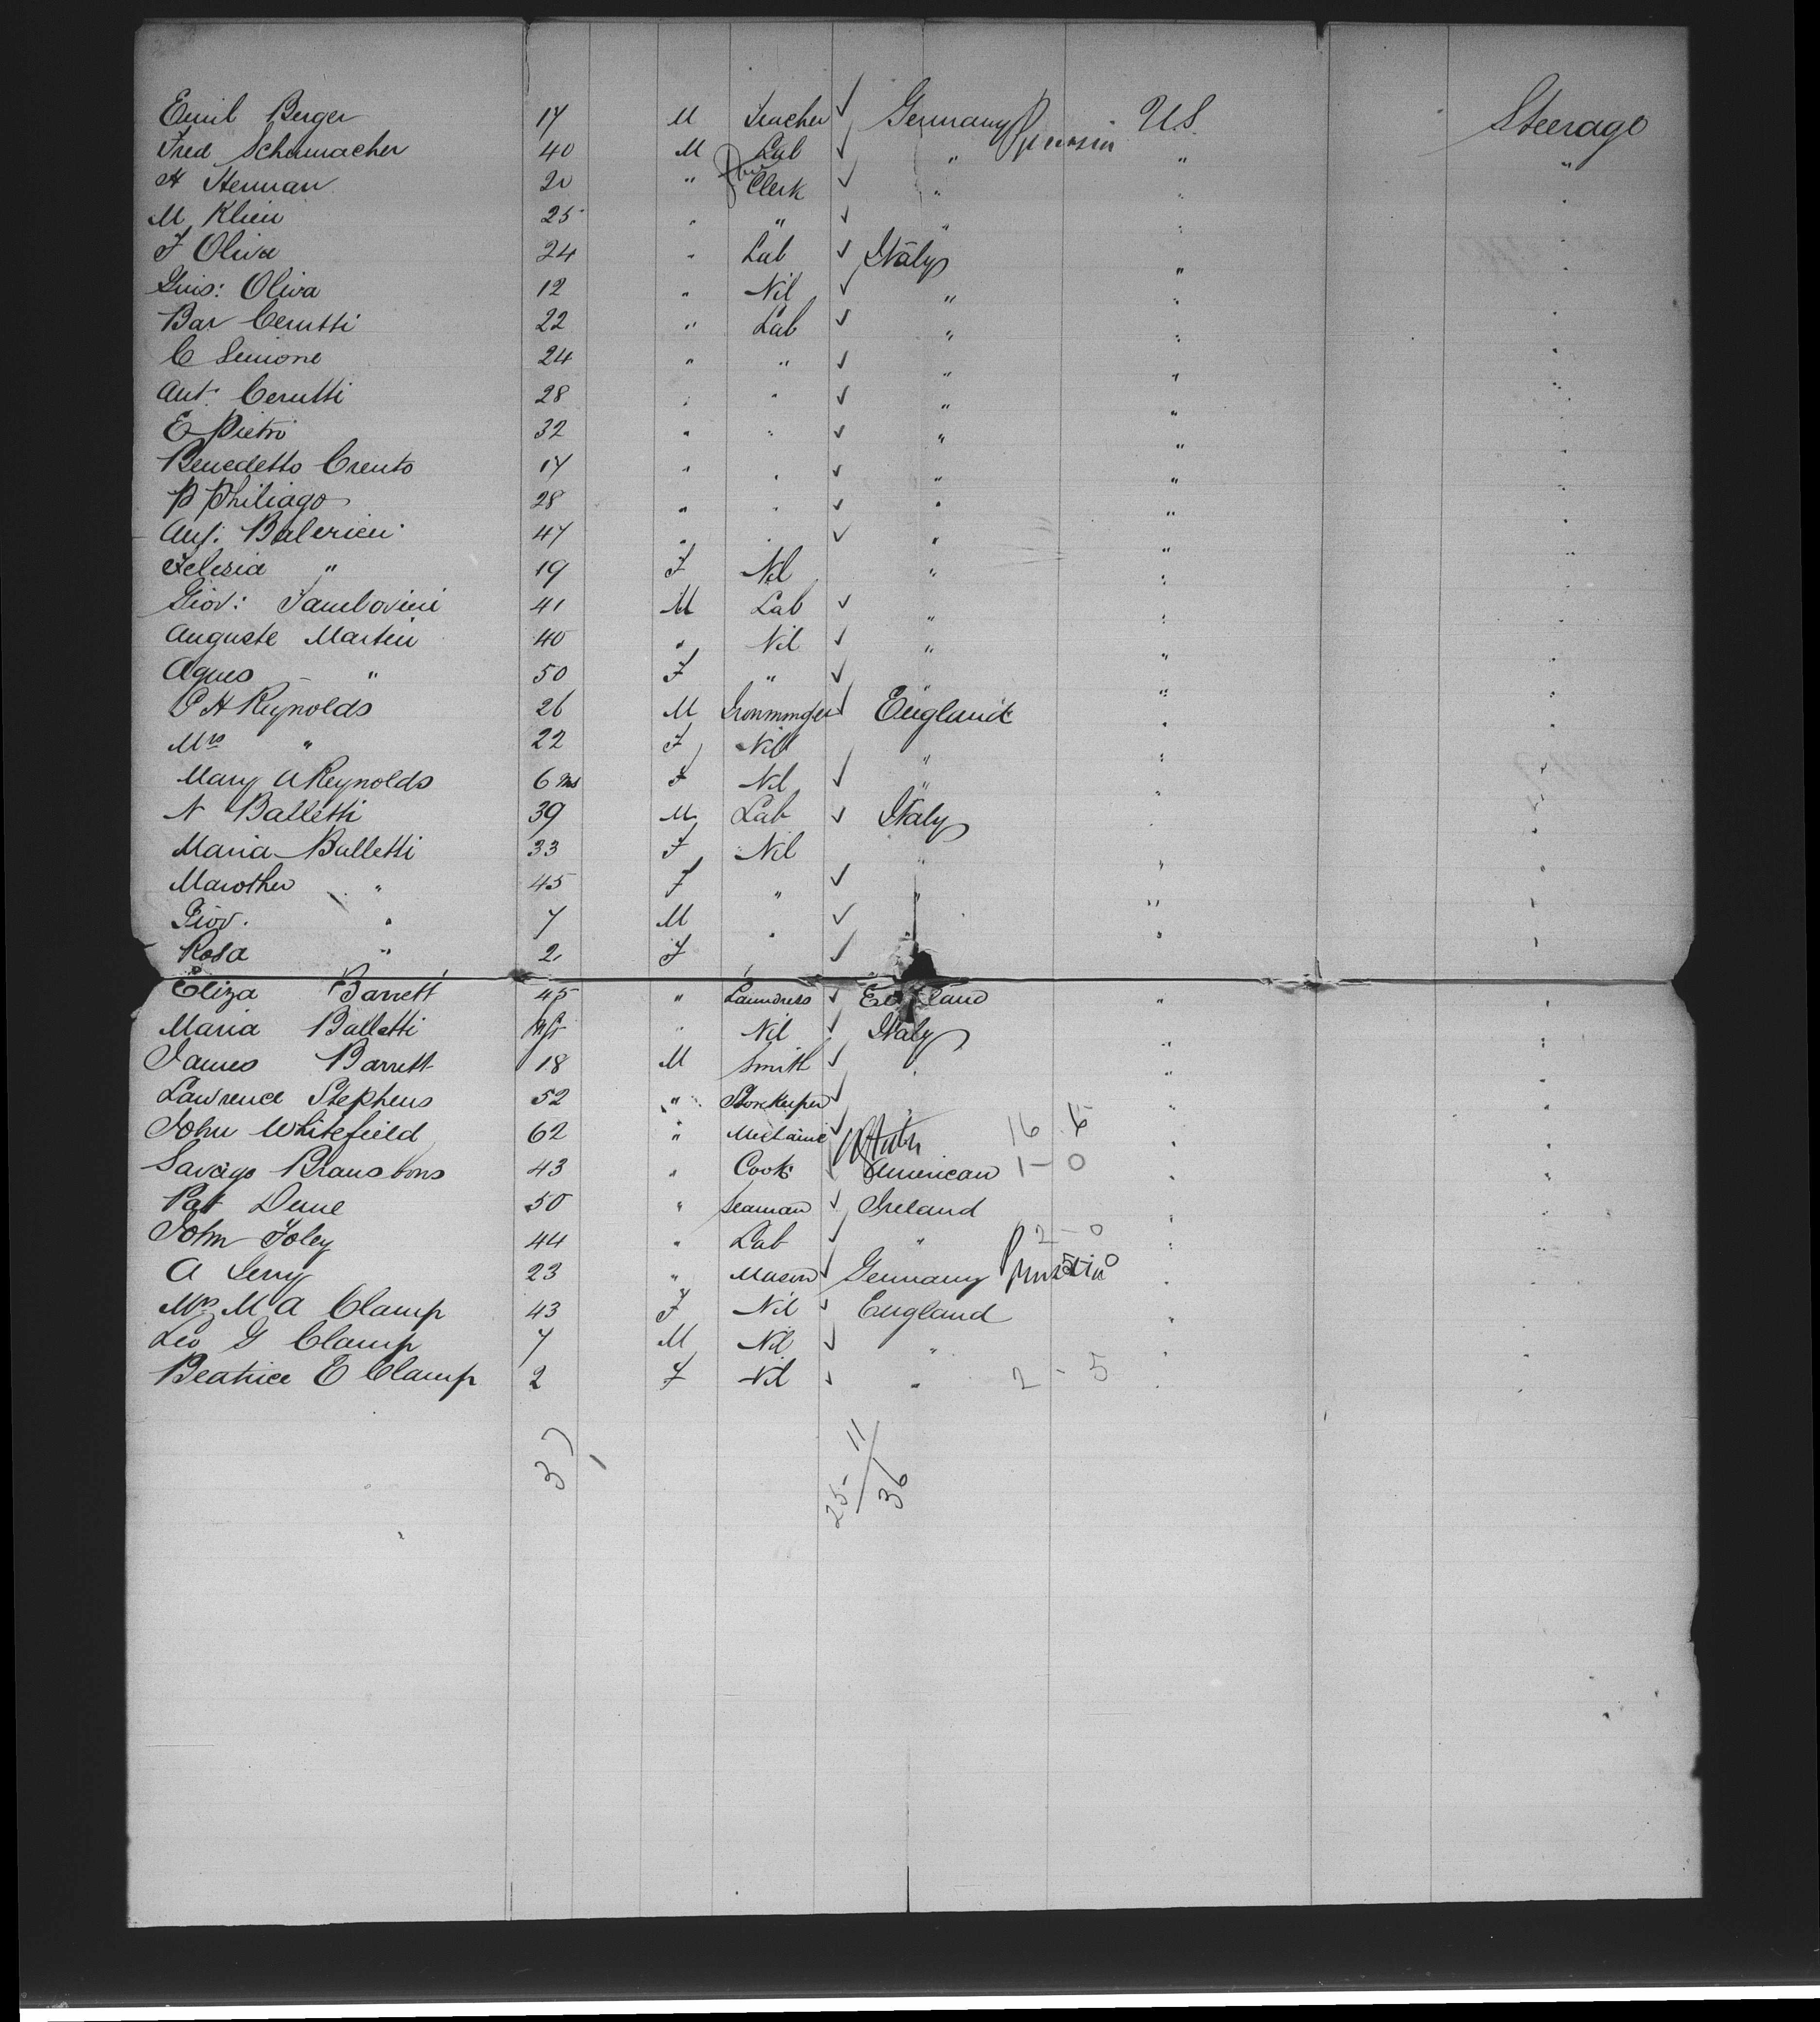 Emil Berger 17 M Teacher ✓ Germany Prussia U.S. Steerage
Fred Schumacher 40 M Lab ✓ " " "
H Herman 20 " Clerk ✓ " " "
M Klein 25 " " ✓ " " "
F Oliva 24 " Lab ✓ Italy " "
Guis: Oliva 12 " Nil ✓ " " "
Bar Cerutti 22 " Lab ✓ " " "
C Simone 24 " " ✓ " " "
Ant. Cerutti 28 " " ✓ " " "
E Pietri 32 " " ✓ " " "
Benedetto Crento 17 " " ✓ " " "
P Philiago 28 " " ✓ " " "
47 " " ✓ " " "
Felesia " 19 F Nil " " "
Giov: 41 M Lab ✓ " " "
Auguste Martin 40 " Nil ✓ " " "
Agnes " 50 F " ✓ " " "
P H Reynolds 26 M ✓ England " "
Mrs " 22 F Nil " " "
Mary A Reynolds 6 ms F Nil ✓ " " "
N Balletti 39 M Lab ✓ Italy " "
Maria Balletti 33 F Nil " " "
" 45 F " ✓ " " "
Giov. " 7 M " ✓ " " "
Rosa " 2 F " ✓ " "
Eliza Barrett 45 " Laundress ✓ " "
Maria Balletti Inft " Nil ✓ Italy " "
James Barrett 18 M Smith ✓ " " "
Lawrence Stephens 52 " Storekeeper ✓ " " "
John Whitefield 62 " ✓ 16 " "
Savage 43 " Cook ✓ American 1 - 0 " "
Pat Dune 50 " Seaman ✓ Ireland " "
John Foley 44 " Lab ✓ " 2 - 0 " "
A 23 " Mason ✓ Germany Prussia " "
Mrs M A Clamp 43 F Nil ✓ England "
Leo G Clamp 7 M Nil ✓ " " "
Beatrice E Clamp 2 F Nil ✓ " 2 - 5 " "
37
25 - 11
36